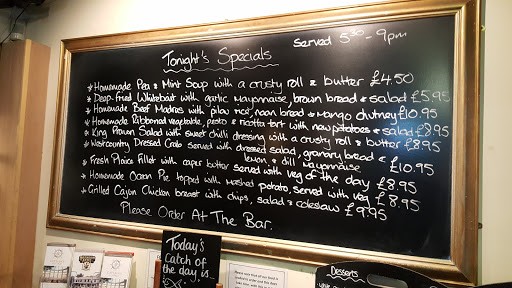 Tonight's Specials
served 5³⁰ - 9pm
* Homemade Pea & Mint Soup with a crusty roll & butter £4.50
* Deep-Fried Whitebait with garlic mayonnaise, brown bread & salad £5.95
* Homemade Beef Madras with pilau rice, naan bread & mango chutney £10.95
* Homemade Ribboned vegetable, pesto & ricotta tart with new potatoes & salad £8.95
* King Prawn Salad with sweet chilli dressing with a crusty roll & butter £8.95
* Westcountry Dressed Crab served with dressed salad, granary bread &
lemon & dill mayonnaise £10.95
* Fresh Plaice Fillet with caper butter served with veg of the day £8.95
* Homemade Ocean Pie topped with mashed potato, served with veg £8.95
* Grilled Cajun Chicken breast with chips, salad & coleslaw £9.95
Please Order At The Bar.
Today's
Catch of
the day is..
Desserts